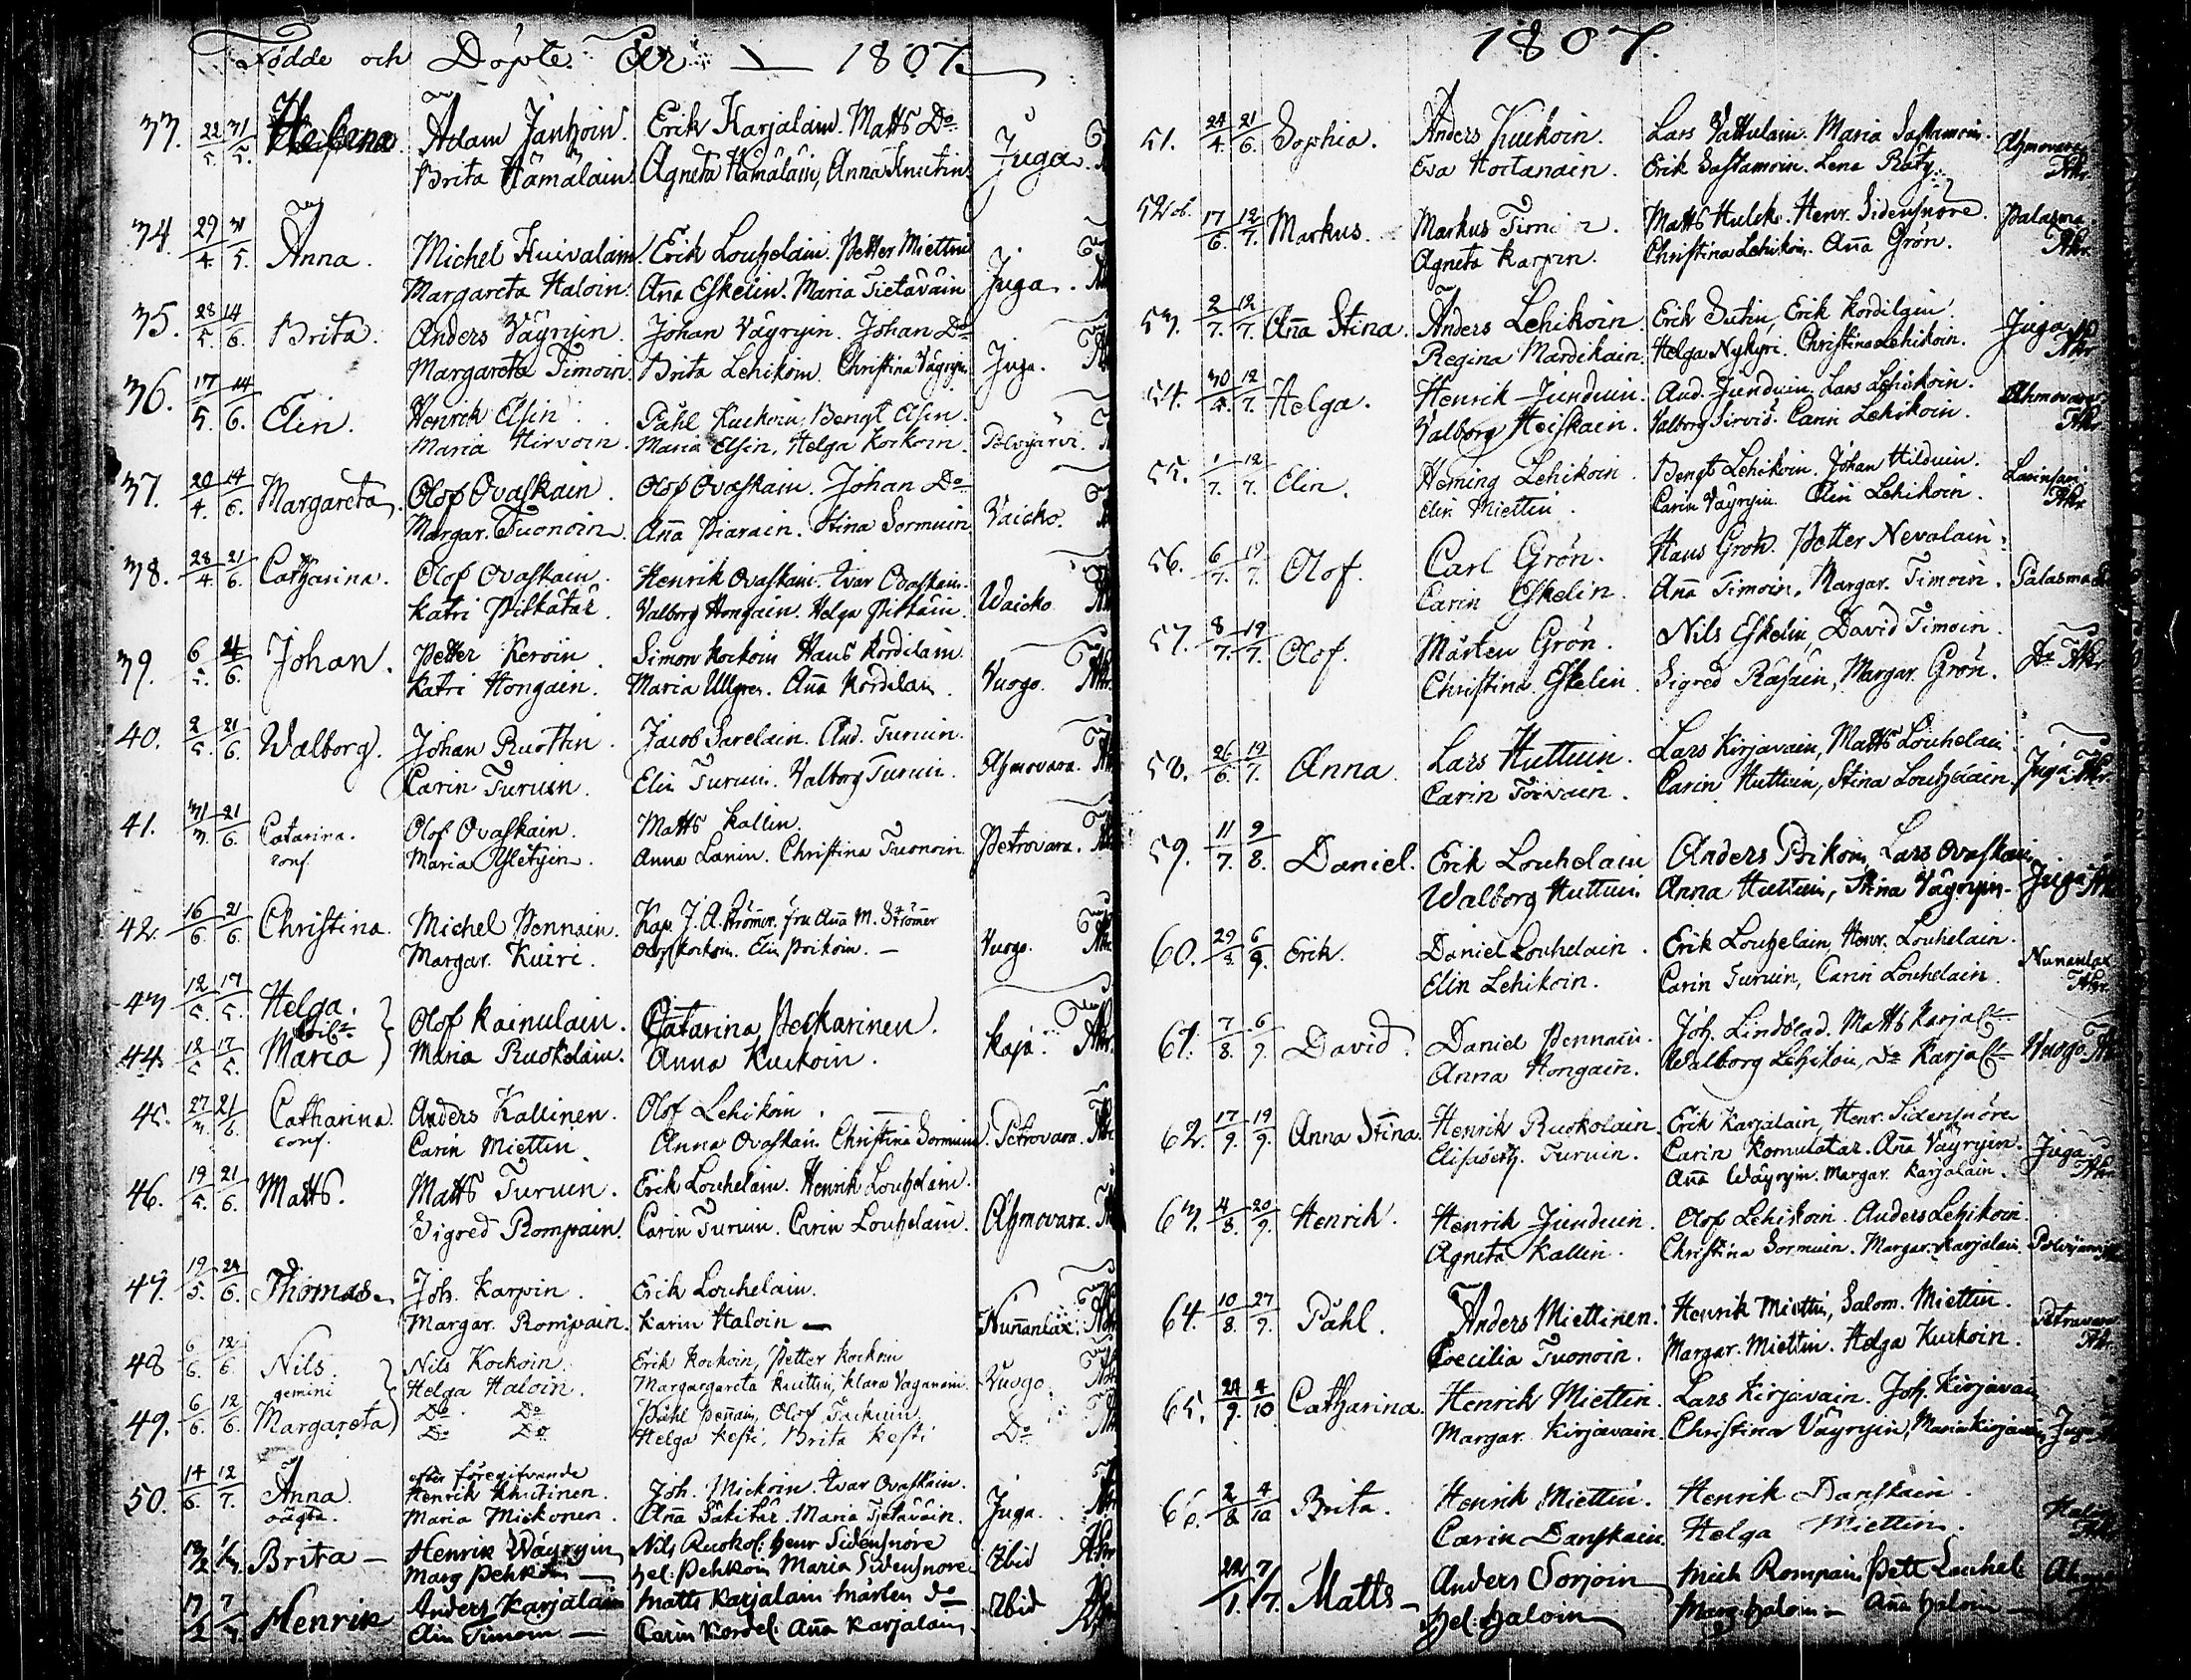 Födde och Döpte År 1807.
33. 22/5. 31/5. Helena. Adam Janhoin. Erik Karjalain. Matts Do Juga.
Brita Hämäläin. Agneta Hämäläin, Anna Knutin
34. 29/4 31/5. Anna. Michel Huivalain. Erik Louhelain. Petter Miettin Juga.
Margareta Haloin. Aña Eskelin. Maria Tietäväin
35. 28/5. 14/6. Brita. Anders Väyryin. Johan Väyryin. Johan Do Juga.
Margareta Timoin. Brita Lehikoin. Christina Väyryin
36. 17/5. 14/6. Elin. Henrik Elsin. Påhl Kuckoin, Bengt Elsin. Polvijärvi.
Maria Hirvoin. Maria Elsin, Helga Kockoin.
37. 20/4. 14/6. Margareta. Olof Ovaskain. Olof Ovaskain. Johan Do Vaicko.
Margar. Tuonoin. Aña Piarain. Stina Sormuin
38. 28/4. 21/6. Catharina. Olof Ovaskain. Henrik Ovaskain. Ivar Ovaskain. Waicko
Katri Pitkätär. Valborg Hongain. Helga Pitkäin.
39. 6/5. 21/6. Johan. Petter Keroin. Simon Kockoin Hans Kordilain. Vuogo.
Katri Hongain. Maria Ullgren. Aña Kordilain.
40. 2/5. 21/6. Walborg. Johan Ruottin. Jacob Sarelain. And. Turuin. Ahmovara.
Carin Turuin. Elin Turuin. Valborg Turuin.
41. 31/3. 21/6. Catarina. Olof Ovaskain. Matts Kallin. Petrovara.
conf. Maria Yletyin. Anna Lanin. Christina Tuonoin.
42. 16/6. 21/6. Christina. Michel Pennain. Kap. J. A. Strömer. fru Aña M. Strömer Vuogo.
Margar. Kuiri. Olof Kockoin. Elin Poikoin.
43 12/5. 17/5. Helga. Olof Kainulain. Catarina Peckarinen. Kajä.
44. 12/5 17/5. Maria Maria Ruokolain. Anna Kuckoin.
45. 27/3. 21/6. Catharina. Anders Kallinen. Olof Lehikoin. Petrovara.
conf. Carin Miettin Anna Ovaskain Christina Sormuin
46. 19/5. 21/6. Matts. Matts Turuin. Erik Louhelain. Henrik Louhelain. Ahmovara.
Sigred Rompain. Carin Turuin. Carin Louhelain.
47. 19/5. 24/6. Thomas. Joh. Karpin. Erik Louhelain. Nuñanlax.
Margar. Rompain. Karin Haloin
48 6/6. 12/6. Nils. Nils Kockoin. Erik Kockoin, Petter Kockoin Vuogo.
gemini Helga Haloin. Margargareta Kuittin, Klara Vaganain.
49. 6/6. 12/6. Margareta Do Do Påhl Peñain, Olof Tuckuin Do
Do Do Helga Kesti, Brita Kesti
50. 14/6. 12/7. Anna. efter föregifvande Joh. Mickoin. Ivar Ovaskain. Juga.
oägta. Henrik Knutinen. Aña Säkitär. Maria Tjetäväin.
Maria Mickonen
Brita Henrik Wäyryin Nils Ruokol. Henr Sidensnöre Ibid
Marg Pehkoin Hel. Pehkoin Maria Sidensnöre
17/2 Henrik Anders Karjalain Matts Karjalain Mårten Do Ibid
Elin Timoin Carin Kordel. Aña Karjalain.
1807.
51. 24/4. 21/6. Sophia. Anders Kuckoin. Lars Vattulain. Maria Sastamoin. Ahmovara
Eva Hortanain. Erik Sastamoin. Lena Räty.
52 ob. 17/6. 12/7. Markus. Markus Timoin. Matts Hulck. Henr. Sidensnöre. Palasma.
Agneta Karpin. Christina Lehikoin. Aña Grön.
53. 2/7. 12/7. Aña Stina. Anders Lehikoin. Erik Sutin, Erik Kordilgin. Juga
Regina Mardikain. Helga Nykyri. Christina Lehikoin.
54. 30/5. 12/7. Helga. Henrik Junduin. And. Junduin, Lars Lehikoin. Ahmovara
Valborg Heiskain. Valborg Sirviö. Carin Lehikoin.
55. 1/7. 12/7. Elin. Heming Lehikoin. Bengt Lehikoin. Johan Hilduin.
Elin Miettin. Carin Väyryin. Elin Lehikoin.
56. 6/7. 19/7. Olof. Carl Grön. Hans Grön. Petter Nevalain. Palasma
Carin Eskelin. Aña Timoin, Margar. Timoin.
57. 8/7. 19/7. Olof. Mårten Grön. Nils Eskelin, David Timoin. Do
Christina Eskelin. Sigred Räsäin, Margar. Grön.
58. 26/6. 19/7. Anna. Lars Huttuin. Lars Kirjavain, Matts Louhelain Juga
Carin Toivain. Carin Huttuin, Stina Louhelain.
59. 11/7. 9/8. Daniel. Erik Louhelain Anders Poikoin, Lars Ovaskain Juga
Walborg Huttuin. Anna Huttuin, Stina Väyryin.
60. 29/8. 6/9. Erik. Daniel Louhelain. Erik Louhelain, Henr. Louhelain. Nunanlax
Elin Lehikoin. Carin Turuin, Carin Louhelain.
61. 7/8. 6/9. David. Daniel Pennain. Joh. Lindblad. Matts Karjal Vuogo
Anna Hongain. Walborg Lehikoin, Do Karjal
62. 17/9. 19/9. Anna Stina. Henrik Ruokolain. Erik Karjalain, Henr. Sidensnöre Juga
Elisabeth. Turuin. Carin Komulatar. Aña Väyryin.
Aña Wäyryin. Margar. Karjalain.
63. 4/8. 20/9. Henrik. Henrik Junduin. Olof Lehikoin. Anders Lehikoin. Polvijärvi
Agneta Kallin. Christina Sormuin. Margar. Karjalain.
64. 10/8. 27/9. Påhl. Anders Miettinen. Henrik Miettin, Salom. Miettin. Petrovara
Coecilia Tuonoin. Margar. Miettin. Helga Kurkoin.
65. 24/9. 4/10 Catharina. Henrik Miettin. Lars Kirjavain. Joh. Kirjavain Juga
Margar. Kirjavain. Christina Väyryin, Maria Kirjavain
66. 2/8. 4/10 Brita. Henrik Miettin. Henrik Danskain.
Carin Danskain. Helga Miettin.
22/1. 7/7. Matts Anders Sorjoin Mich Rompain, Pett Louhel.
Hel. Haloin Marg. Haloin Aña Haloin